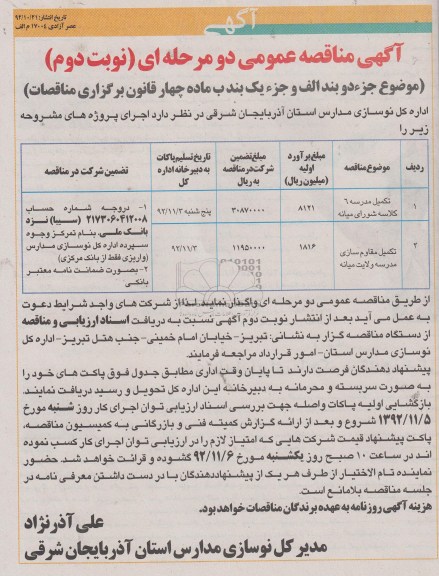 تاریخ انتشار: ۹۲/۱۰/۲۱
عصر آزادی ۱۷۰۰۴ م الف
آگهی
آگهی مناقصه عمومی دو مرحله ای (نوبت دوم)
(موضوع جزء دو بند الف و جزء یک بند ب ماده چهار قانون برگزاری مناقصات)
اداره کل نوسازی مدارس استان آذربایجان شرقی در نظر دارد اجرای پروژه های مشروحه
زیر را
ردیف
موضوع مناقصه
مبلغ برآورد اولیه (میلیون ریال)
مبلغ تضمین شرکت در مناقصه به ریال
تاریخ تسلیم پاکات به دبیرخانه اداره کل
تضمین شرکت در مناقصه
۱
تکمیل مدرسه ۶ کلاسه شورای میانه
۸۱۲۱
۳۰۸۷۰۰۰۰
پنج شنبه ۹۲/۱۱/۳
۲
تکمیل مقاوم سازی مدرسه ولایت میانه
۱۸۱۶
۱۱۹۵۰۰۰۰
۹۲/۱۱/۳
۱- دروجه شماره حساب
۲۱۷۳۰۶۰۴۱۲۰۰۸ (سیبا) نزد
بانک ملی، بنام تمرکز وجوه
سپرده اداره کل نوسازی مدارس
(واریزی فقط از بانک مرکزی)
۲-بصورت ضمانت نامه معتبر
بانکی
از طریق مناقصه عمومی دو مرحله ای واگذار نماید. لذا از شرکت های واجد شرایط دعوت
به عمل می آید بعد از انتشار نوبت دوم آگهی نسبت به دریافت اسناد ارزیابی و مناقصه
از دستگاه مناقصه گزار به نشانی: تبریز- خیابان امام خمینی- جنب هتل تبریز- اداره کل
نوسازی مدارس استان- امور قرارداد مراجعه فرمایند.
پیشنهاد دهندگان فرصت دارند تا پایان وقت اداری مطابق جدول فوق پاکت های خود را
به صورت سربسته و محرمانه به دبیرخانه این اداره کل تحویل و رسید دریافت نمایند.
بازگشایی اولیه پاکات واصله جهت بررسی اسناد ارزیابی توان اجرای کار روز شنبه مورخ
۱۳۹۲/۱۱/۵ شروع و بعد از ارائه گزارش کمیته فنی و بازرگانی به کمیسیون مناقصه،
پاکت پیشنهاد قیمت شرکت هایی که امتیاز لازم را در ارزیابی توان اجرای کار کسب نموده
اند در ساعت ۱۰ صبح روز یکشنبه مورخ ۹۲/۱۱/۶ گشوده و قرائت خواهد شد. حضور
نماینده تام الاختیار از طرف هر یک از پیشنهاددهندگان با در دست داشتن معرفی نامه در
جلسه مناقصه بلامانع است.
هزینه آگهی روزنامه به عهده برندگان مناقصات خواهد بود.
علی آذرنژاد
مدیر کل نوسازی مدارس استان آذربایجان شرقی